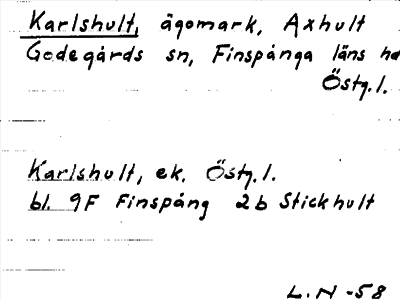 Karlshult, ägomark, Axhult
Godegårds sn, Finspånga läns hd
Östg.l.
Karlshult, ek. Östg.l.
bl. 9F Finspång 2b Stickhult
L.N -58